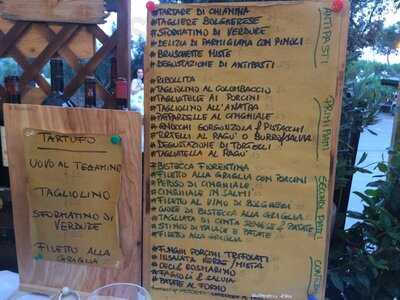 TARTUFO
UOVO AL TEGAMINO
TAGLIOLINO
SFORMATINO DI
VERDURE
FILETTO ALLA
GRIGLIA
ANTIPASTI
*TARTARE DI CHIANINA
*TAGLIERE BOLGHERESE
*SFORMATINO DI VERDURE
*DELIZIA DI PARMIGIANA CON PINOLI
*BRUSCHETTE MISTE
*DEGUSTAZIONE DI ANTIPASTI
PRIMI PIATTI
*RIBOLLITA
*TAGLIOLINO AL COLOMBACCIO
*TAGLIATELLE AI PORCINI
*TAGLIOLINO ALL'ANATRA
*PAPPARDELLE AL CINGHIALE
*GNOCCHI GORGONZOLA & PISTACCHI
*TORTELLI AL RAGU' O BURRO/SALVIA
*DEGUSTAZIONE DI TORTELLI
*TAGLIATELLA AL RAGU'
SECONDI PIATTI
*BISTECCA FIORENTINA
*FILETTO ALLA GRIGLIA CON PORCINI
*PEPOSO DI CINGHIALE
*CINGHIALE IN SALMI
*FILETTO AL VINO DI BOLGHERI
*CUORE DI BISTECCA ALLA GRIGLIA
*TAGLIATA DI CINTA SENESE & PATATE
*STINCO DI MAIALE E PATATE
*FILETTO ALLA GRIGLIA
*FUNGHI PORCINI TRIFOLATI
*INSALATA VERDE/MISTA
*CECI E ROSMARINO
*FAGIOLI & SALVIA
*PATATE AL FORNO